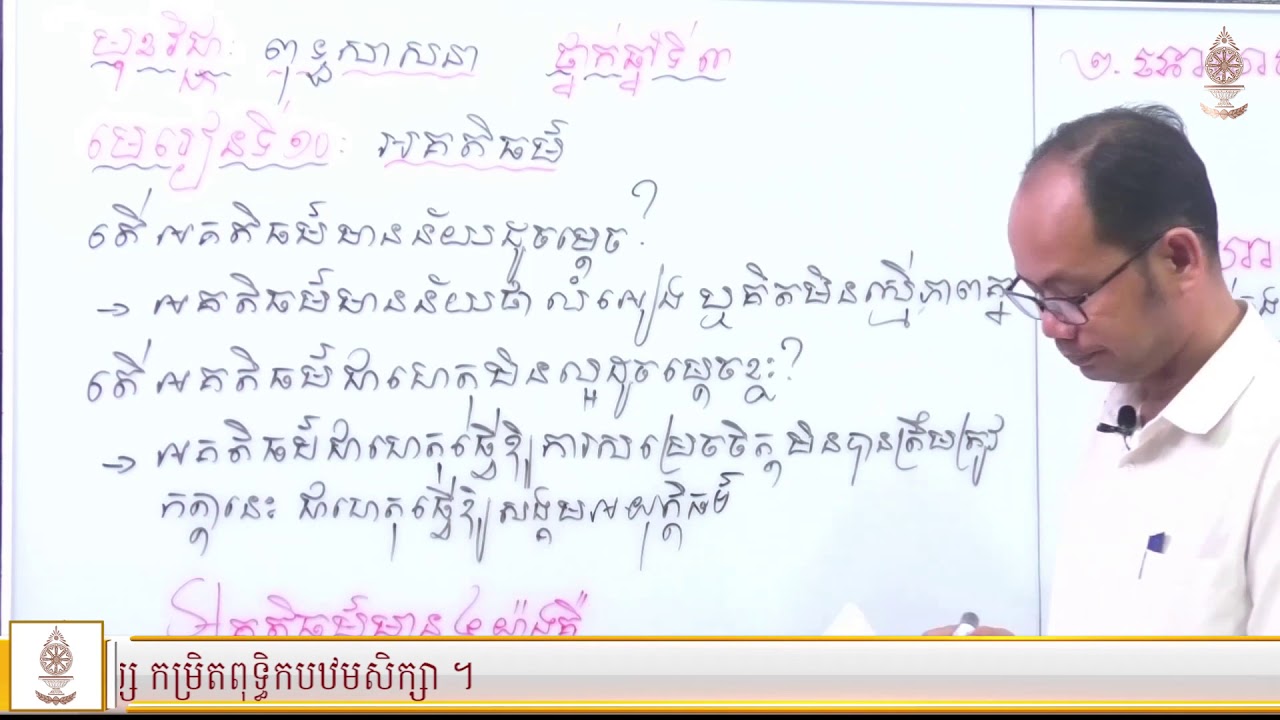 មុខវិជ្ជា: ពុទ្ធសាសនា ថ្នាក់ឆ្នាំទី ៣
មេរៀនទី ១០: អគតិធម៌
តើអគតិធម៌មានន័យដូចម្ដេច?
→ អគតិធម៌មានន័យថា លំអៀង ឬគិតមិនស្មើភាពគ្នា
តើអគតិធម៌ជាហេតុមិនល្អដូចម្ដេចខ្លះ?
→ អគតិធម៌ជាហេតុធ្វើឱ្យការសម្រេចចិត្តមិនបានត្រឹមត្រូវ
កត្តានេះ ជាហេតុធ្វើឱ្យសង្គមអយុត្តិធម៌
អគតិធម៌មាន ៤ យ៉ាងគឺ
២.
កម្រិតពុទ្ធិកបឋមសិក្សា ។